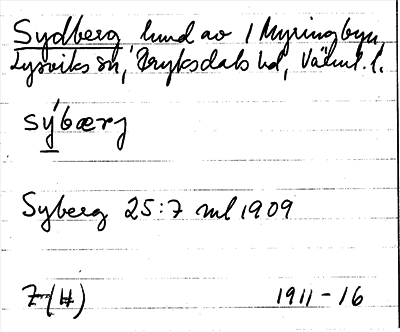 Sydberg, hmd av / Myringbyn,
Lysviks sn, Fryksdals hd, Värml. l.
sýbærj
Syberg 25:7 ml 1909
1911-16